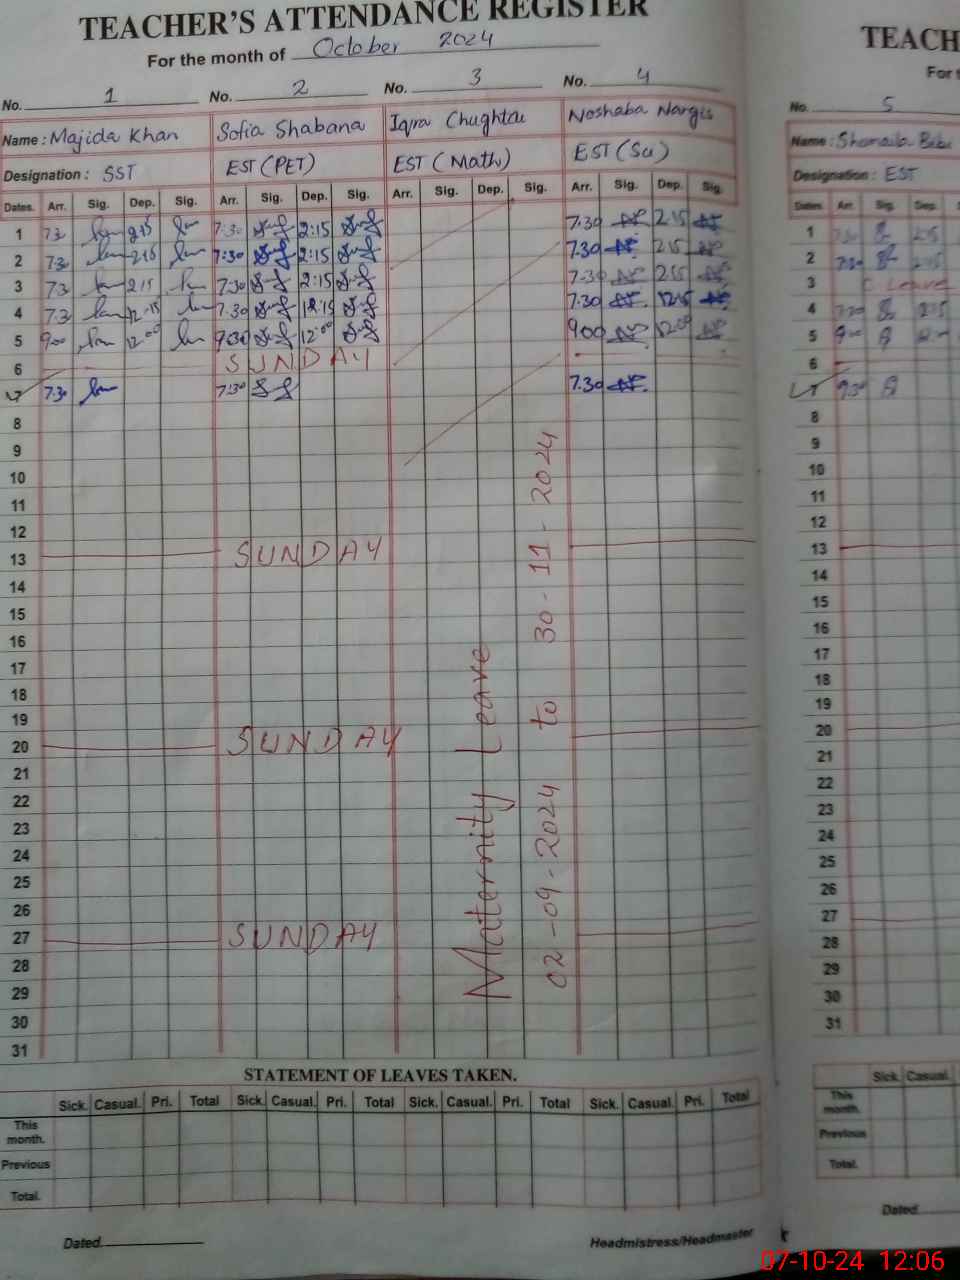 TEACHER'S ATTENDANCE REGISTER
For the month of October 2024
No. 1 No. 2 No. 3 No. 4
Name : Majida Khan Sofia Shabana Iqra Chughtai Noshaba Nargis
Designation : SST EST (PET) EST (Math) EST (Sci)
Dates. Arr. Sig. Dep. Sig. Arr. Sig. Dep. Sig. Arr. Sig. Dep. Sig. Arr. Sig. Dep. Sig.
1 7.3 2:15 7:30 2:15 7.30 2:15
2 7.3 2:15 7:30 2:15 7.30 2:15
3 7.3 2:15 7:30 2:15 7.30 2:15
4 7.3 12:15 7:30 12:15 7.30 12:15
5 9:00 12:00 9:30 12:00 9:00 12:00
6 SUNDAY
7 7:30 7:30 7.30
8
9
10
11
12
13 SUNDAY
14
15
16
17
18
19
20 SUNDAY
21
22
23
24
25
26
27 SUNDAY
28
29
30
31
Maternity Leave
02-09-2024 to 30-11-2024
STATEMENT OF LEAVES TAKEN.
Sick. Casual. Pri. Total Sick. Casual. Pri. Total Sick. Casual. Pri. Total Sick. Casual. Pri. Total
This month.
Previous
Total.
Dated. Headmistress/Headmaster
TEACH
For t
No. 5
Name : Shamaila Bibi
Designation : EST
Dates Arr. Sig. Dep.
1 7:30 2:15
2 7:30 2:15
3 C. Leave
4 7:30 2:15
5 9:00
6
7
8
9
10
11
12
13
14
15
16
17
18
19
20
21
22
23
24
25
26
27
28
29
30
31
Sick. Casual.
This month.
Previous
Total.
Dated.
07-10-24 12:06